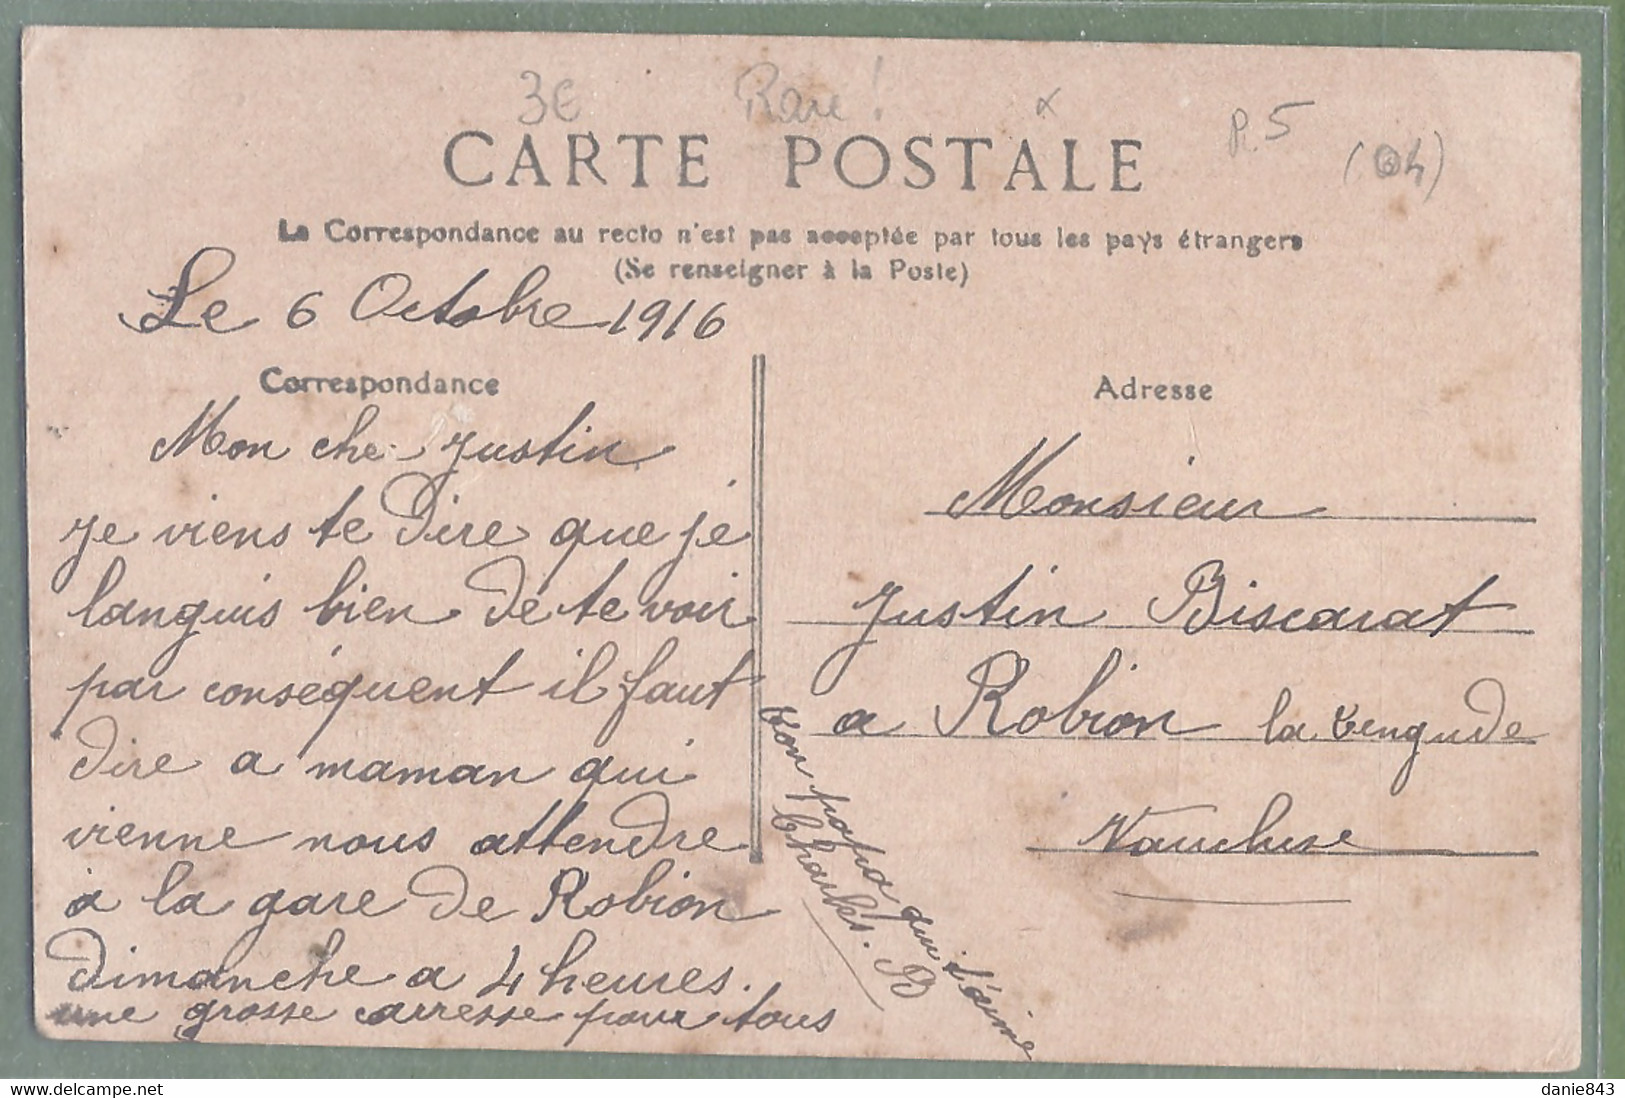 3€ Rare ! x
P. 5
(04)
CARTE POSTALE
La Correspondance au recto n'est pas acceptée par tous les pays étrangers
(Se renseigner à la Poste)
Le 6 Octobre 1916
Correspondance
Mon cher Justin
Je viens te dire que je
languis bien de te voir
par conséquent il faut
dire a maman qui
vienne nous attendre
a la gare de Robion
dimanche a 4 heures.
une grosse carresse pour tous
Ton papa qui t'aime
Charles. B
Adresse
Monsieur
Justin Biscarat
a Robion la Tengude
Vaucluse
www.delcampe.net
danie843